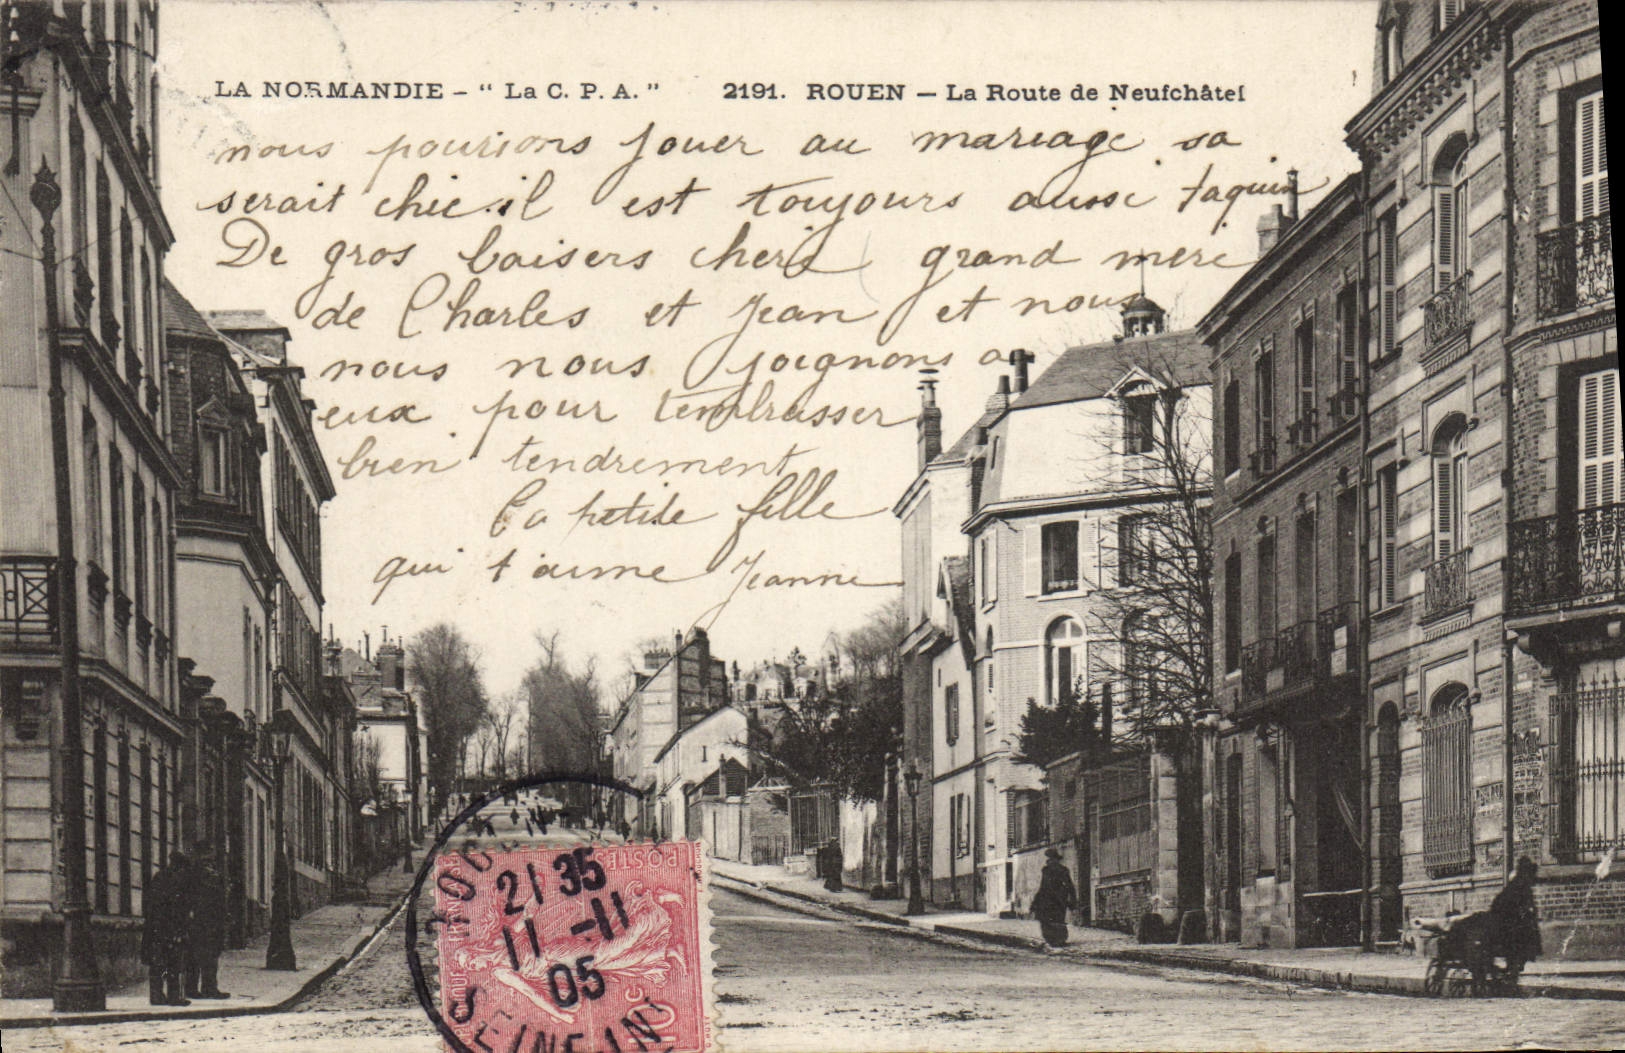 LA NORMANDIE - " La C. P. A. " 2191. ROUEN - La Route de Neufchâtel
nous pourions jouer au mariage sa
serait chic. il est toujours aussi taquin
De gros baisers cheri grand mere
de Charles et Jean et nous
nous nous joignons a
eux pour tembrasser
bien tendrement
Ta petite fille
qui t'aime Jeanne
POSTES
21 35
11 -11
05
10c
ROUEN
SEINE-INF